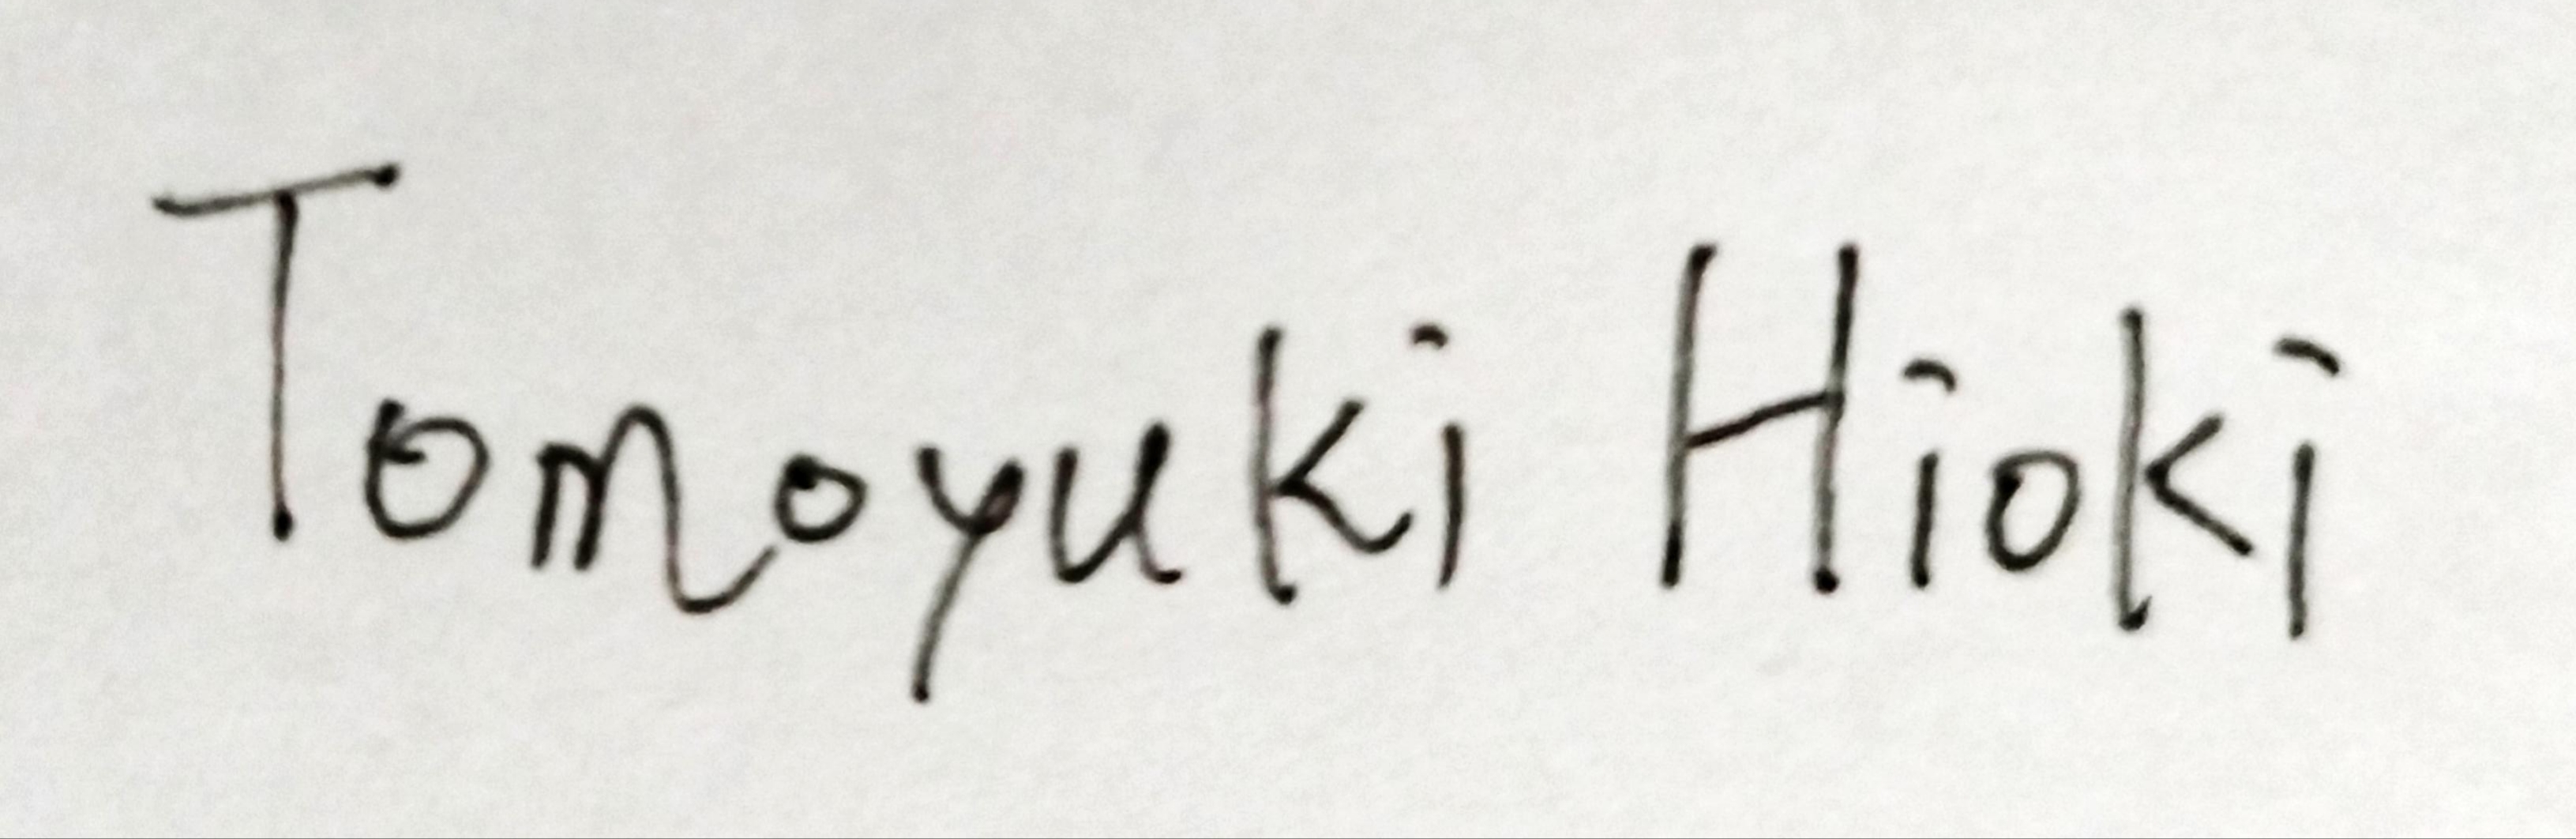 Tomoyuki Hioki